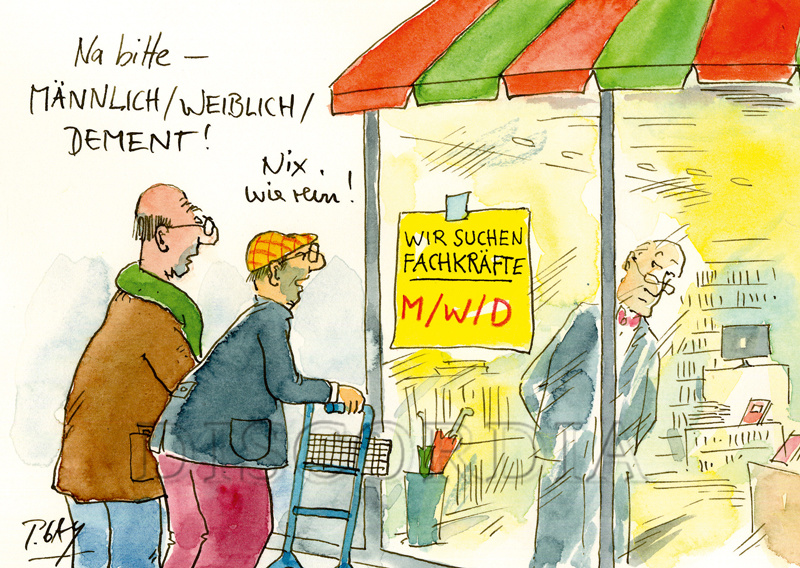 Na bitte –
MÄNNLICH/WEIBLICH/
DEMENT!
Nix
wie rein!
WIR SUCHEN
FACHKRÄFTE
M/W/D
DISCORDIA
P. GAY